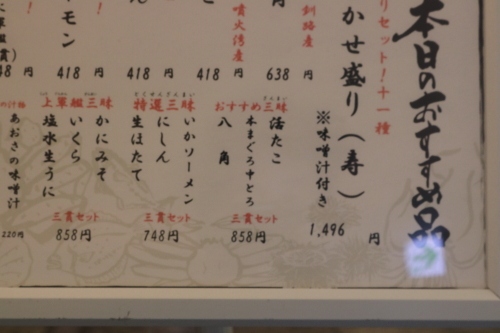 本日のおすすめ品
リセット!十一種
かせ盛り(寿)
※味噌汁付き
1,496 円
釧路産
638 円
噴火湾産
418 円
418 円
モン
418 円
円
おすすめ三昧
活たこ
本まぐろ中とろ
八角
三貫セット
858円
特選三昧
いかソーメン
にしん
生ほたて
三貫セット
748円
上軍艦三昧
かにみそ
いくら
塩水生うに
三貫セット
858円
あおさの味噌汁
220円